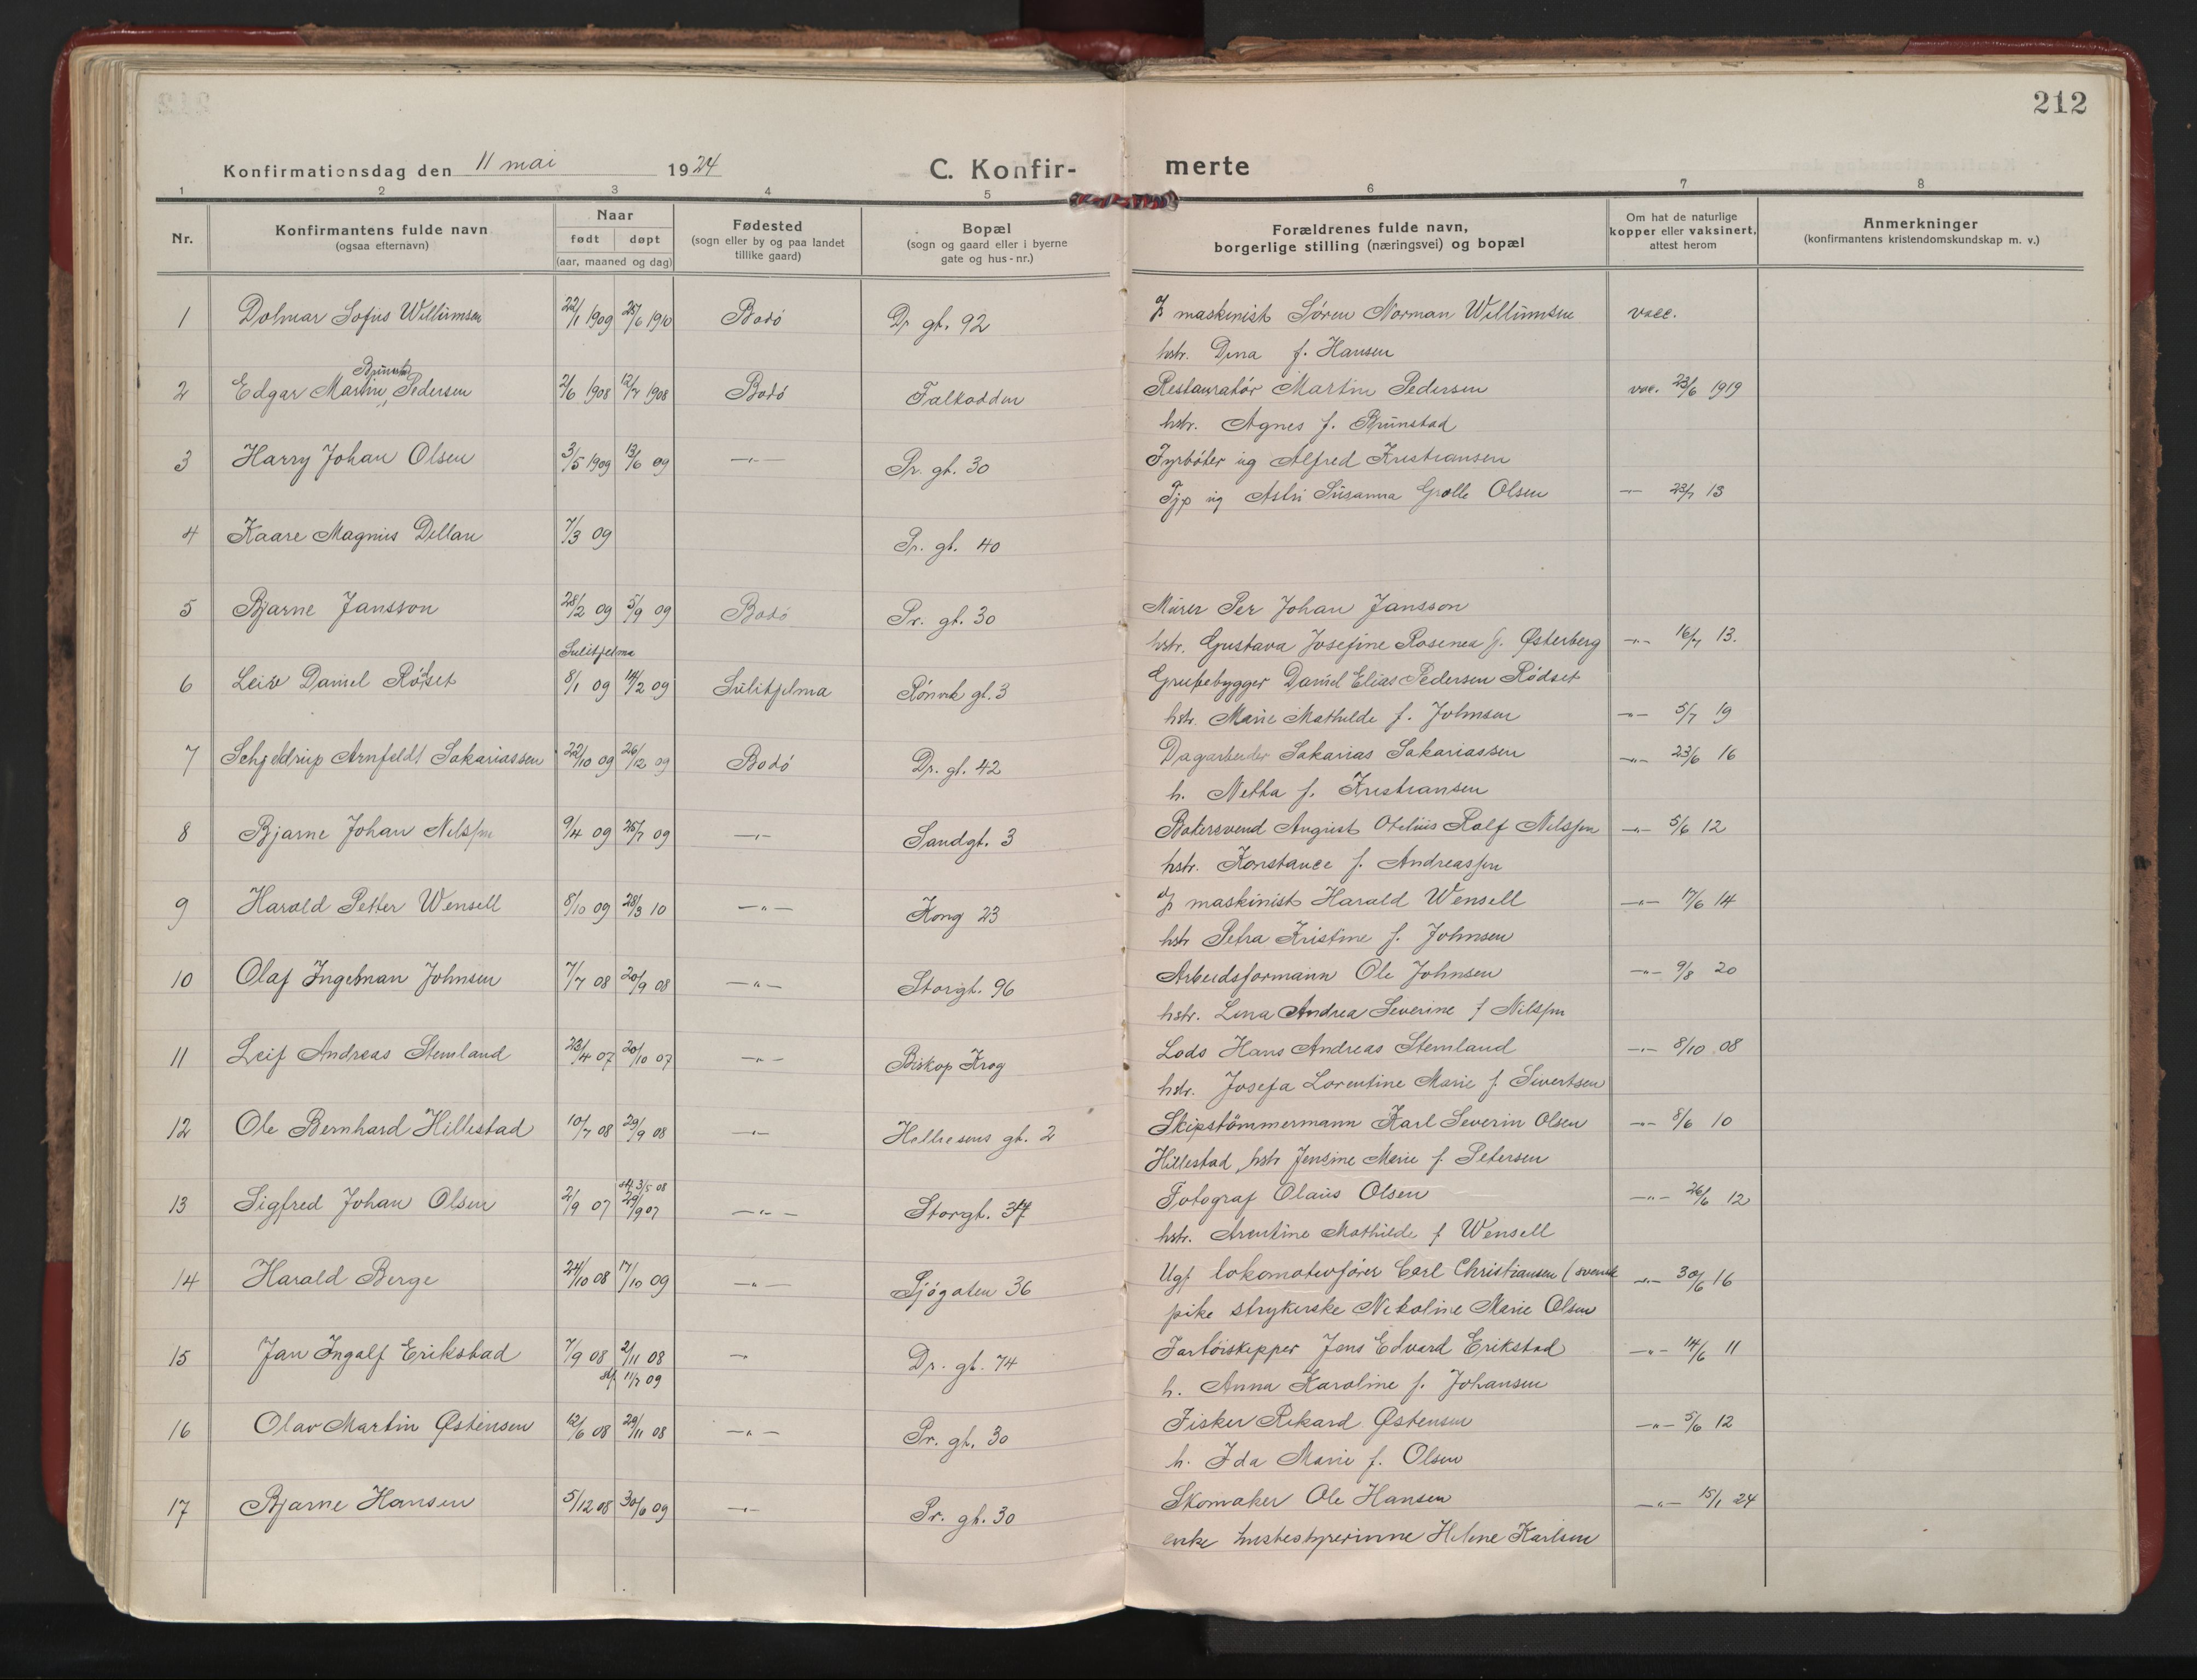 212
Konfirmationsdag den 11 mai 1924
C. Konfir-
merte
1 2 3 4 5 6 7 8
Nr.
Konfirmantens fulde navn
(ogsaa efternavn)
Naar
født døpt
(aar, maaned og dag)
Fødested
(sogn eller by og paa landet
tillike gaard)
Bopæl
(sogn og gaard eller i byerne
gate og hus-nr.)
Forældrenes fulde navn,
borgerlige stilling (næringsvei) og bopæl
Om hat de naturlige
kopper eller vaksinert,
attest herom
Anmerkninger
(konfirmantens kristendomskundskap m. v.)
1 Dolmar Sofus Willumsen 22/1 1909 25/6 1910 Bodø Dr gt. 92 maskinist Søren Norman Willumsen vacc.
hstr. Dina f. Hansen
Brunstad
2 Edgar Martin, Pedersen 2/6 1908 12/7 1908 Bodø Falkodden Restauratør Martin Pedersen vac. 23/6 1919
hstr. Agnes f. Brunstad
3 Harry Johan Olsen 3/5 1909 13/6 09 —"— Pr. gt. 30 Fyrbøter ug Alfred Kristiansen
Tjp ug Astri Susanna Grolle Olsen — 23/7 13
4 Kaare Magnus Dellan 7/3 09 Pr. gt. 40
5 Bjarne Jansson 28/2 09 5/9 09 Bodø Pr. gt. 30 Murer Per Johan Jansson
hstr. Gustava Josefine Rosenea f. Østerberg —"— 16/7 13.
Sulitjelma
6 Leiv Daniel Rødset 8/1 09 14/2 09 Sulitjelma Rønvik gt. 3 Grubebygger Daniel Elias Pedersen Rødset
hstr. Marie Mathilde f. Johnsen —"— 5/7 19
7 Schjeldrup Arnfeldt Sakariassen 22/10 09 26/12 09 Bodø Dr. gt. 42 Dagarbeider Sakarias Sakariassen —"— 23/6 16
h. Netta f. Kristiansen
8 Bjarne Johan Nilssen 9/4 09 25/7 09 —"— Sandgt. 3 Bøtersvend August Otelius Rolf Nilssen —"— 5/6 12
hstr. Konstance f. Andreassen
9 Harald Petter Wensell 8/10 09 28/3 10 —"— Kong 23 maskinist Harald Wensell —"— 17/6 14
hstr Petra Kristine f. Johnsen
10 Olaf Ingebman Johnsen 7/7 08 20/9 08 —"— Storgt. 96 Arbeidsformann Ole Johnsen —"— 9/8 20
hstr. Lina Andrea Severine f Nilssen
11 Leif Andreas Stemland 23/4 07 20/10 07 —"— Biskop Krog Lods Hans Andreas Stemland —"— 8/10 08
hstr. Josefa Lorentine Marie f. Sivertsen
12 Ole Bernhard Hillestad 10/7 08 29/9 08 —"— Hellesens gt. 2 Skipstømmermann Karl Severin Olsen —"— 8/6 10
Hillestad, hstr Jensine Marie f. Petersen
stf. 3/5 08
13 Sigfred Johan Olsen 2/9 07 29/9 07 —"— Storgt. 37 Fotograf Olaus Olsen —"— 26/6 12
hstr. Arentine Mathilde f Wensell
14 Harald Berge 24/10 08 17/10 09 —"— Sjøgaten 36 Ugf lokomotivfører Carl Christiansen (svensk —"— 30/6 16
pike strykerske Nikoline Marie Olsen
15 Jan Ingolf Erikstad 7/9 08 2/11 08 —"— Dr. gt. 74 Fartøiskipper Jens Edvard Erikstad —"— 14/6 11
stf 11/7 09
h. Anna Karoline f. Johansen
16 Olav Martin Østensen 12/6 08 29/11 08 —"— Pr. gt. 30 Fisker Rikard Østensen —"— 5/6 12
h. Ida Marie f. Olsen
17 Bjarne Hansen 5/12 08 30/6 09 —"— Pr. gt. 30 Skomaker Ole Hansen —"— 15/1 24
enke husbestyrerinne Helene Karlsen